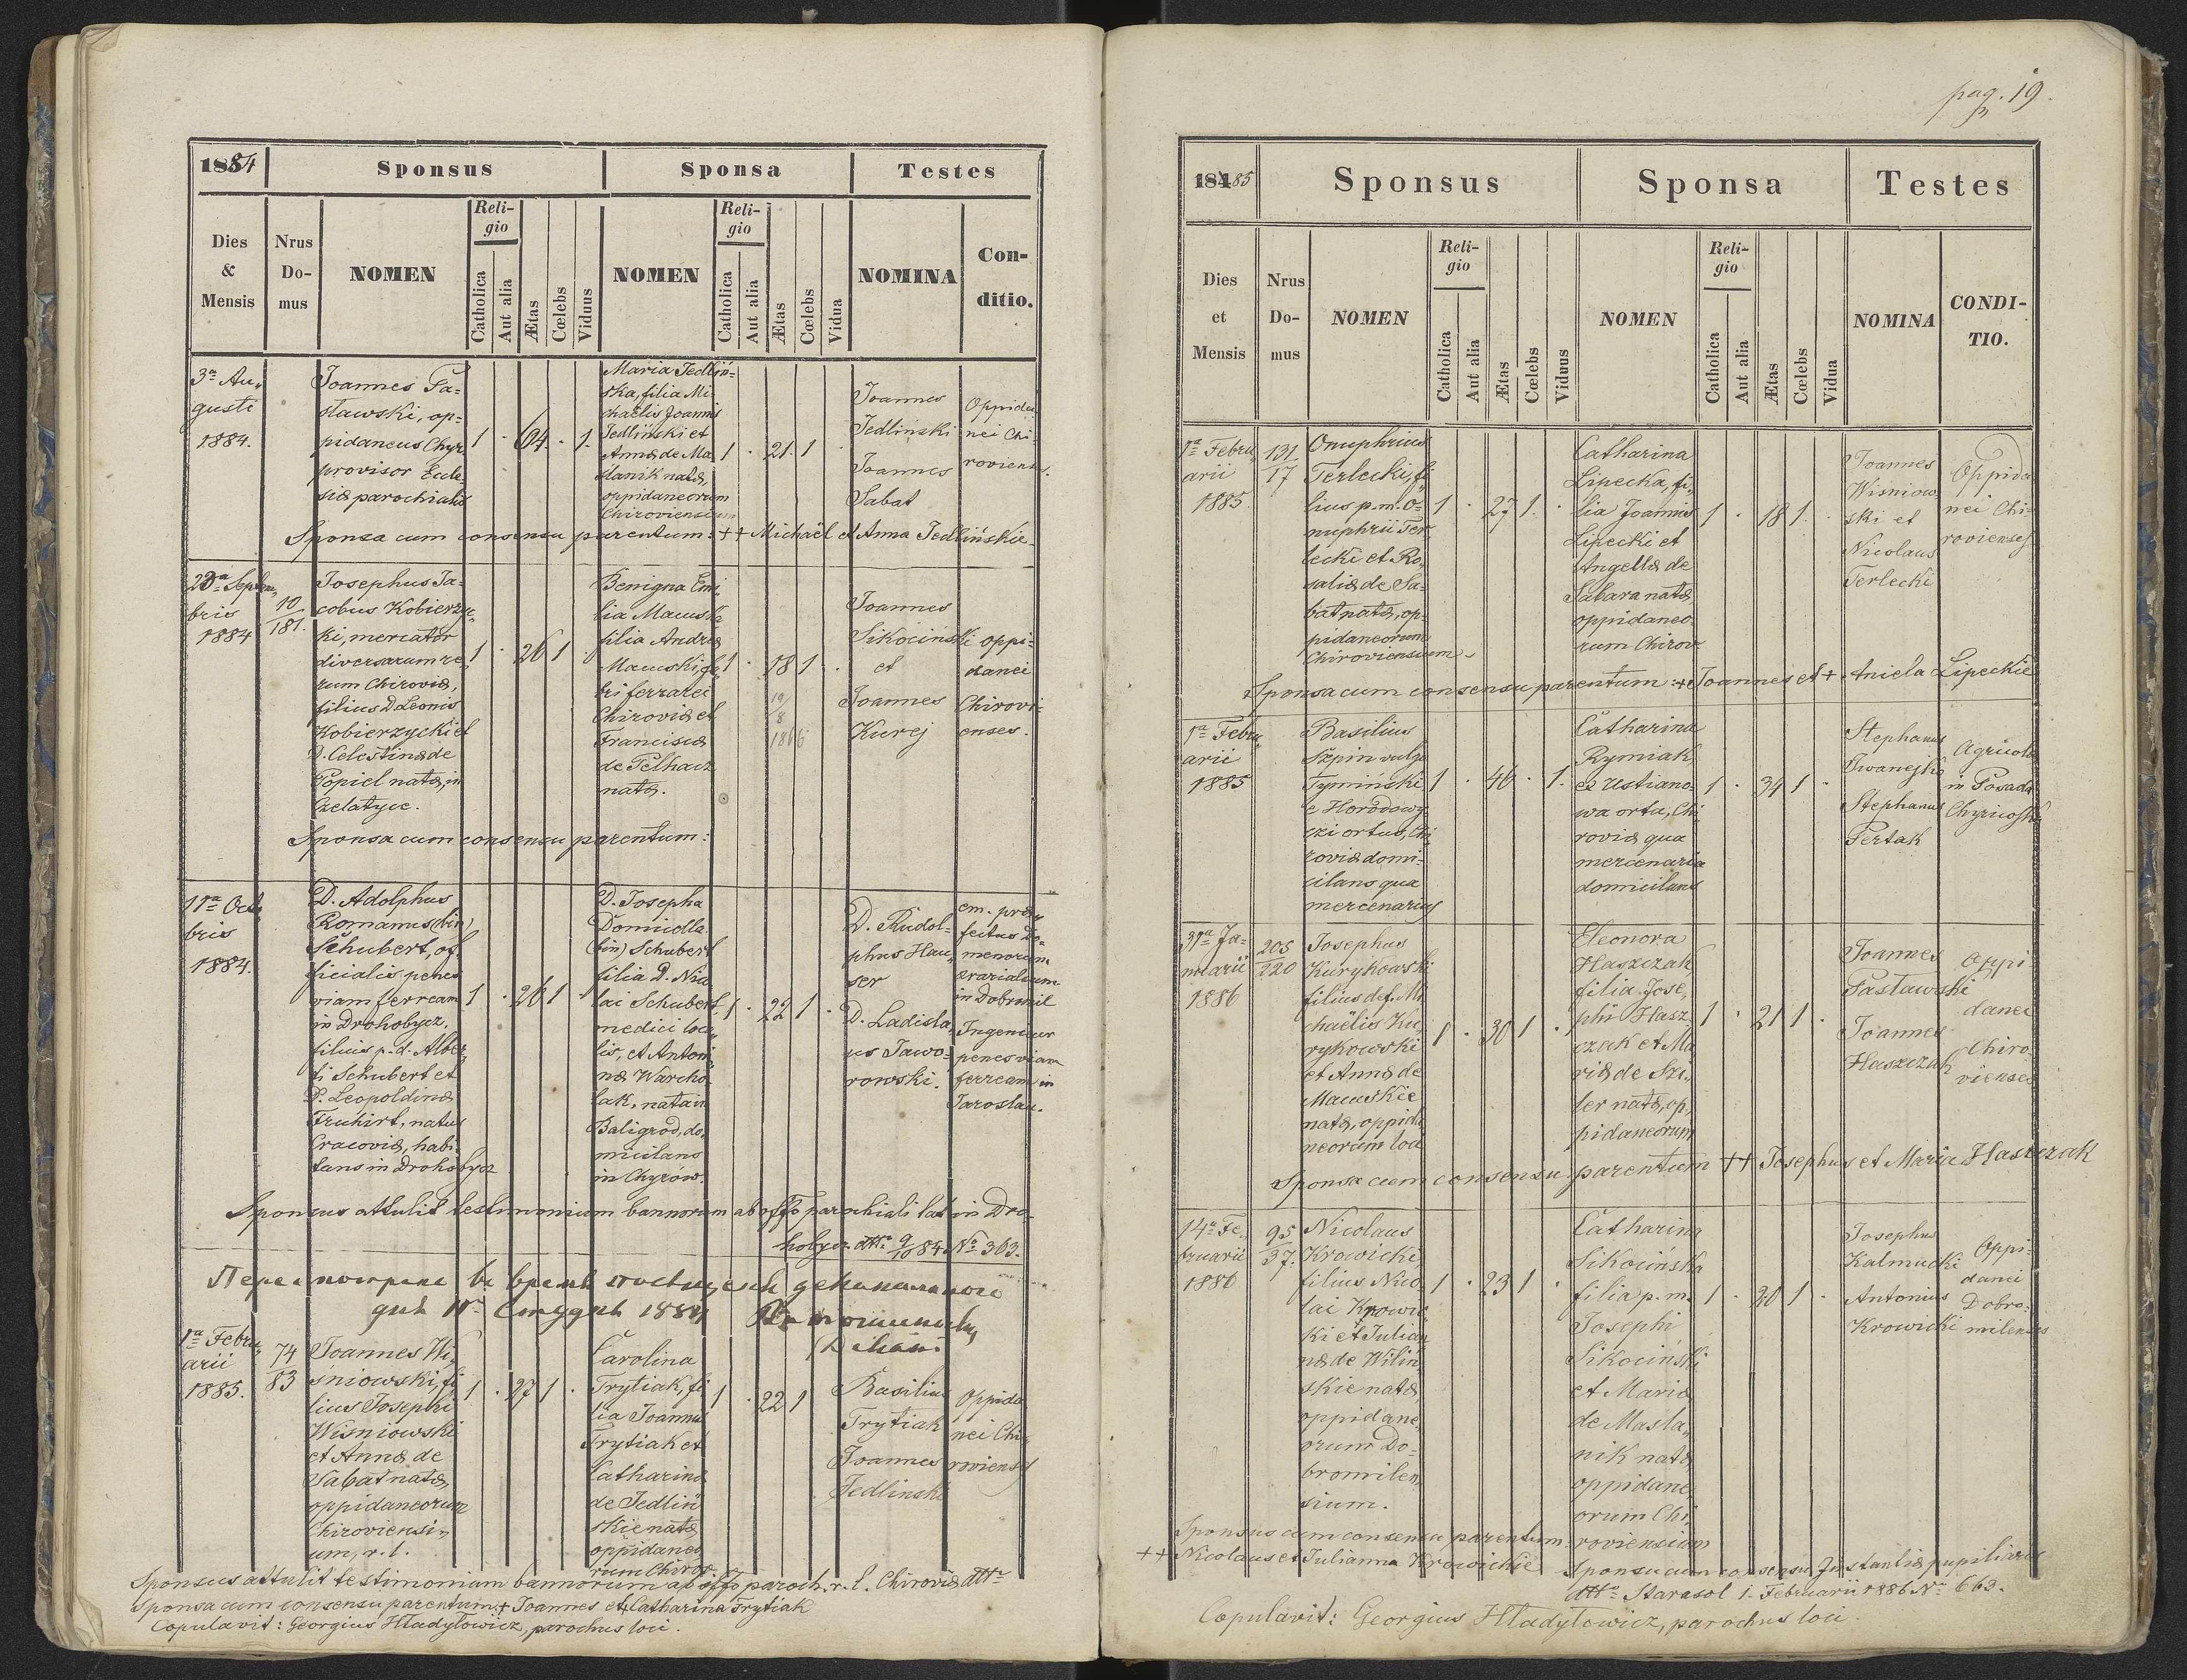 1884
Sponsus
Sponsa
Testes
Dies
&
Mensis
Nrus
Do-
mus
NOMEN
Reli-
gio
Catholica
Aut alia
Ætas
Cœlebs
Viduus
NOMEN
Reli-
gio
Catholica
Aut alia
Ætas
Cœlebs
Vidua
NOMINA
Con-
ditio.
3ª Au„
gusti
1884.
Joannes Pa=
stawski, op=
pidaneus Chyr.
provisor Eccle„
siæ parochialis
1 . 64 . 1.
Maria Jedliń=
ska, filia Mi
chaëlis Joannis
Jedliński et
Annæ de Ma
slanik natæ,
oppidaneorum
Chiroviensium
1 . 21. 1
Joannes
Jedlinski
Joannes
Sabat
Oppida
nei Chi
roviens.
Sponsa cum consensu parentum: ++ Michaël et Anna Jedlińskie
23ª Septem„
bris
1884
10
181.
Josephus Ja=
cobus Kobierzyc„
ki, mercator
diversarum re„
rum Chiroviæ,
filius D. Leonis
Kobierzycki et
D. Celestinæ de
Popiel natæ, in
Czelatyce.
1 . 26 1 .
Benigna Emi
lia Macuska
filia Andreæ
Macuski, fa
bri ferrarei
Chiroviæ et
Franciscæ
de Pelhacz
natæ.
1 . 18 1 .
19/
8
1866
Joannes
Sikocinski
et
Joannes
Kurej
oppi=
danei
Chirovi=
enses.
Sponsa cum consensu parentum:
11ª Octo
bris
1884.
D. Adolphus
Romanus (bin)
Schubert, of„
ficialis penes
viam ferream
in Drohobycz,
filius p. d. Alber„
ti Schubert et
D. Leopoldinæ
Fruhirt, natus
Cracoviæ, habi„
tans in Drohobycz
1 . 26 1 .
D. Josepha
Domicella
(bin) Schubert
filia D. Nico
lai Schubert,
medici loca„
lis, et Antoni„
næ Warcho„
lak, nata in
Baligrod, do„
micilans
in Chyrów.
1 . 22 1 .
D. Rudol=
phus Hau„
ser
D. Ladisla„
us Jawo=
rowski.
em. præ„
fectus Do„
menorum
ærarialium
in Dobromil
Ingenieur
penes viam
ferream in
Jaroslau.
Sponsus attulit testimonium bannorum ab offo parochiali lat in Dro„
hobycz dtto 9/10 84 No 363.
1884
1ª Febru„
arii
1885.
74
83
Joannes Wi„
śniowski, fi„
lius Josephi
Wisniowski
et Annæ de
Sabat natæ,
oppidaneorum
Chiroviensi„
um, r. l.
1 . 27 1 .
Carolina
Trytiak, fi
lia Joannis
Trytiak et
Catharinæ
de Jedliń
skie natæ,
oppidaneo
rum Chirov.
1 . 22 1
Basilius
Trytiak
Joannes
Jedlinski
Oppida
nei Chi„
rovienses
Sponsus attulit testimonium bannorum ab offo paroch. r. l. Chiroviæ dtto
Sponsa cum consensu parentum + Joannes et + Catharina Trytiak
Copulavit: Georgius Hładyłowicz, parochus loci.
pag. 19.
18485
Sponsus
Sponsa
Testes
Dies
et
Mensis
Nrus
Do-
mus
NOMEN
Reli-
gio
Catholica
Aut alia
Ætas
Cœlebs
Viduus
NOMEN
Reli-
gio
Catholica
Aut alia
Ætas
Cœlebs
Vidua
NOMINA
CONDI-
TIO.
1ª Febru„
arii
1885.
131.
17
Onuphrius
Terlecki, fi
lius p. m. O=
nuphrii Ter
lecki et Ro„
saliæ de Sa=
bat natæ, op=
pidaneorum
Chiroviensium
1 . 27 1 .
Catharina
Lipecka, fi„
lia Joannis
Lipecki et
Angellæ de
Sabara natæ
oppidaneo
rum Chirov.
1 . 18 1 .
Joannes
Wisniow„
ski et
Nicolaus
Terlecki
Oppida
nei Chi=
rovienses
Sponsa cum consensu parentum: + Joannes et + Aniela Lipeckie
1ª Febru„
arii
1885
Basilius
Szpin vulgo
Tymiński
e Horodowy„
czi ortus, Chi
roviæ domi=
cilans qua
mercenarius
1 . 46 . 1.
Catharina
Rymiak
ex Ustiano
wa ortu, Chi
roviæ qua
mercenaria
domicilans
1 . 34 1 .
Stephanus
Iwanejko
Stephanus
Pertak
Agricola
in Posada
Chyrioska
31ª Ja=
nuarii
1886
205
220
Josephus
Kurykowski
filius def. Mi
chaëlis Ku„
rykowski
et Annæ de
Macuskie
natæ, oppida
neorum loci
1 . 30 1 .
Eleonora
Haszczak
filia Jose„
phi Hasz„
czak et Ma
riæ de Szi„
ler natæ, op„
pidaneorum
1 . 21 1 .
Joannes
Pastawski
Joannes
Haszczak
Oppi
danei
Chiro„
vienses
Sponsa cum consensu parentum ++ Josephus et Maria Haszczak
14ª Fe„
bruarii
1886
95
37.
Nicolaus
Krowicki,
filius Nico„
lai Krowic„
ki et Julian
næ de Wilin„
skie natæ,
oppidane„
orum Do=
bromilen„
sium.
1 . 23 1 .
Catharina
Sikocińska
filia p. m.
Josephi
Sikociński
et Mariæ
de Masla„
nik natæ
oppidane
orum Chi„
roviensium
1 . 20 1 .
Josephus
Kalmucki
Antonius
Krowicki
Oppi„
danei
Dobro=
milenses
Sponsus cum consensu parentum
++ Nicolaus et Julianna Krowickie
Sponsa cum consensu Instantiæ pupillaris
dtto Starasol 1. Februarii 1886 No 663.
Copulavit: Georgius Hładyłowicz, parochus loci.